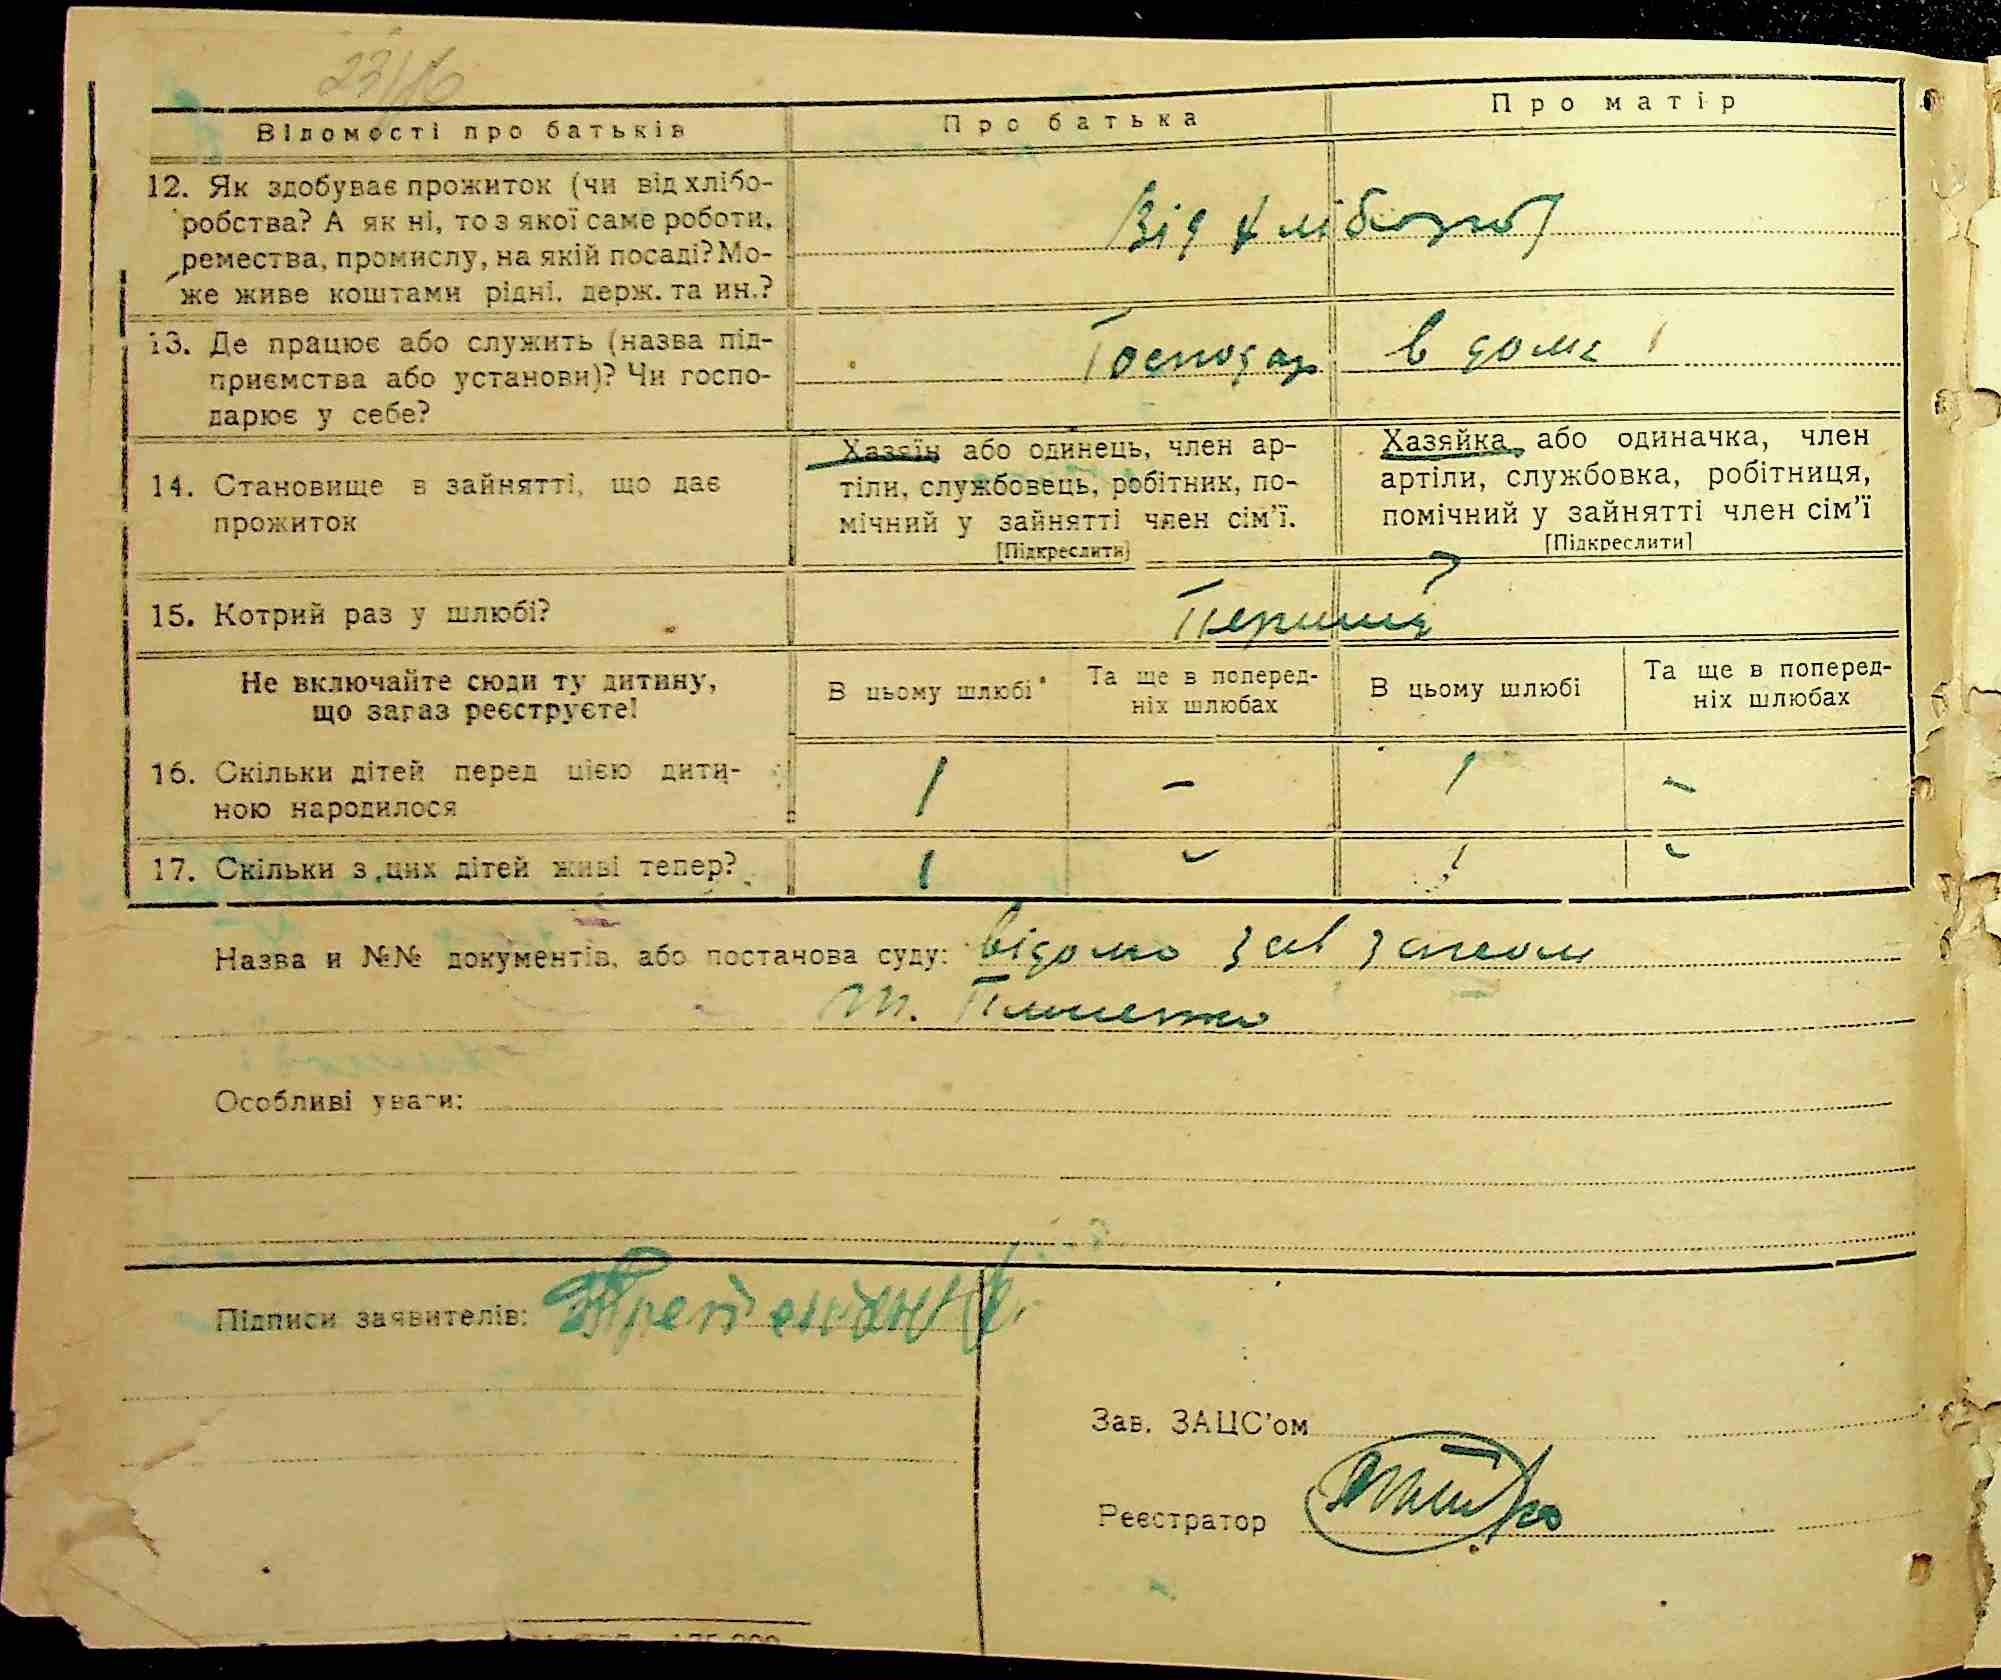 23/16
Відомості про батьків
Про батька
Про матір
12. Як здобуває прожиток (чи від хлібо-
робства? А як ні, то з якої саме роботи,
ремества, промислу, на якій посаді? Мо-
же живе коштами рідні, держ. та ин.?
Від хлібороб
13. Де працює або служить (назва під-
приємства або установи)? Чи госпо-
дарює у себе?
Господар в дома
14. Становище в зайнятті, що дає
прожиток
Хазяїн або одинець, член ар-
тіли, службовець, робітник, по-
мічний у зайнятті член сім'ї.
[Підкреслити]
Хазяйка, або одиначка, член
артіли, службовка, робітниця,
помічний у зайнятті член сім'ї
[Підкреслити]
15. Котрий раз у шлюбі?
Перший
Не включайте сюди ту дитину,
що зараз реєструєте!
В цьому шлюбі
Та ще в поперед-
ніх шлюбах
В цьому шлюбі
Та ще в поперед-
ніх шлюбах
16. Скільки дітей перед цією дити-
ною народилося
1 - 1 -
17. Скільки з цих дітей живі тепер?
1 - 1 -
Назва и №№ документів, або постанова суду: відомо зав загсом
т.
Особливі уваги:
Підписи заявителів:
Зав. ЗАЦС'ом
Реєстратор